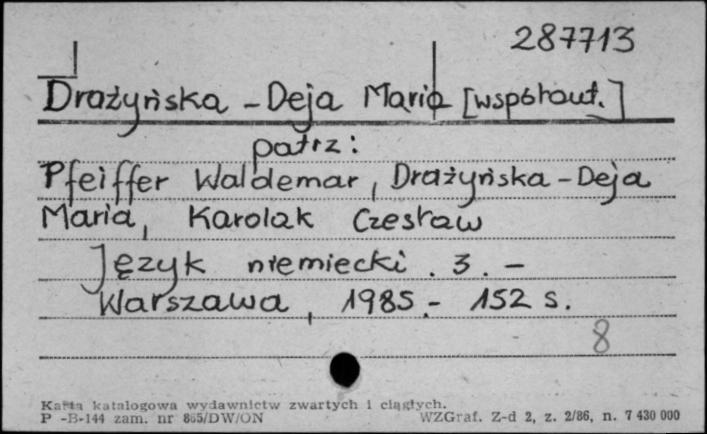 287713
Drażyńska - Deja Maria [współaut.]
patrz:
Pfeiffer Waldemar, Drażyńska - Deja
Maria, Karolak Czesław
Język niemiecki. 3. -
Warszawa, 1985. - 152 s.
8
Karta katalogowa wydawnictw zwartych i ciągłych.
P -B-144 zam. nr 865/DW/ON WZGraf. Z-d 2, z. 2/86, n. 7 430 000